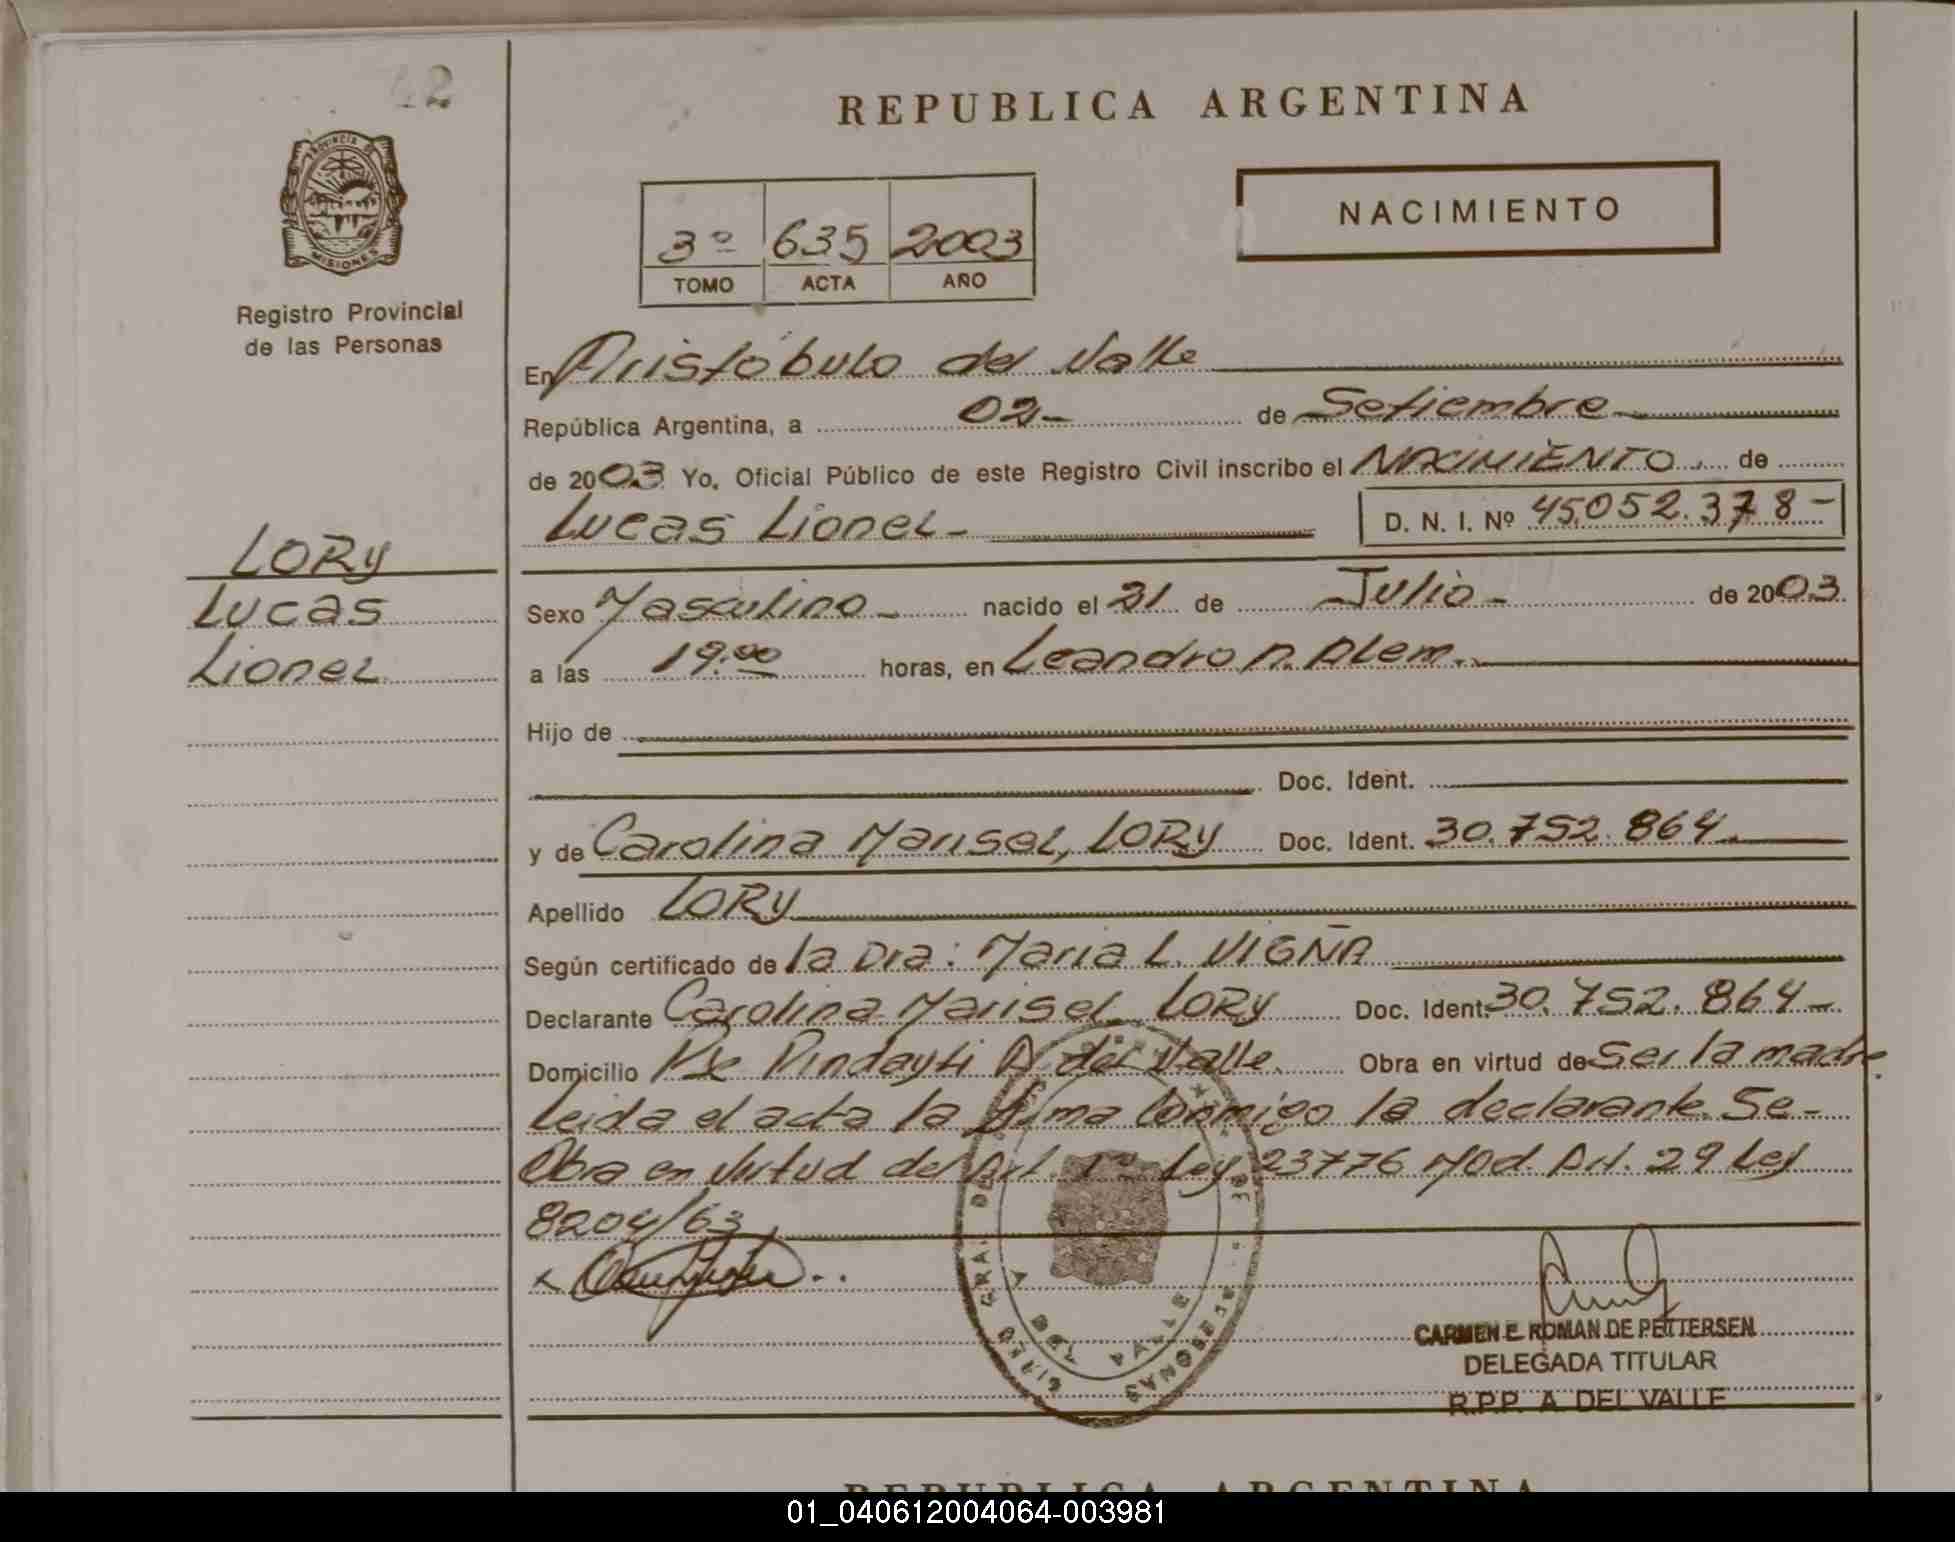 42
REPUBLICA ARGENTINA
PROVINCIA DE
MISIONES
Registro Provincial
de las Personas
3º 635 2003
TOMO ACTA AÑO
NACIMIENTO
En Aristóbulo del Valle
República Argentina, a 02- de Setiembre
de 2003 Yo, Oficial Público de este Registro Civil inscribo el NACIMIENTO. de
Lucas Lionel- D. N. I. Nº 45.052.378-
LORY
Lucas
Lionel
Sexo Masculino- nacido el 21 de Julio- de 2003.
a las 19:00 horas, en Leandro N. Alem.
Hijo de
Doc. Ident.
y de Carolina Marisel, LORY Doc. Ident. 30.752.864.
Apellido LORY
Según certificado de la Dra: Maria L. VIGÑA
Declarante Carolina Marisel LORY Doc. Ident. 30.752.864-
Domicilio Pindayti A. del Valle. Obra en virtud de Ser la madre.
Leida el acta la firma conmigo la declarante. Se-
Obra en Virtud del Art. 1º Ley 23776 Mod. Art. 29 Ley
8204/63.
DEL VALLE
CARMEN E. ROMAN DE PETTERSEN
DELEGADA TITULAR
R.P.P. A. DEL VALLE
REPUBLICA ARGENTINA
01_040612004064-003981